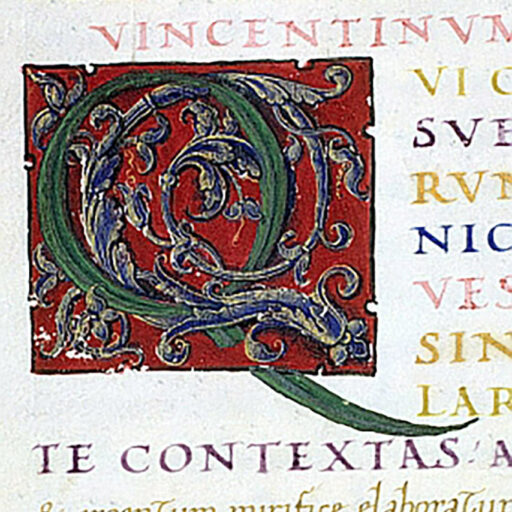 VINCENTINVM
Q VI C
SVE
RVN
NIC
VES
SIN
LAR
TE CONTEXTAS: A
argentum mirifice elaboratum